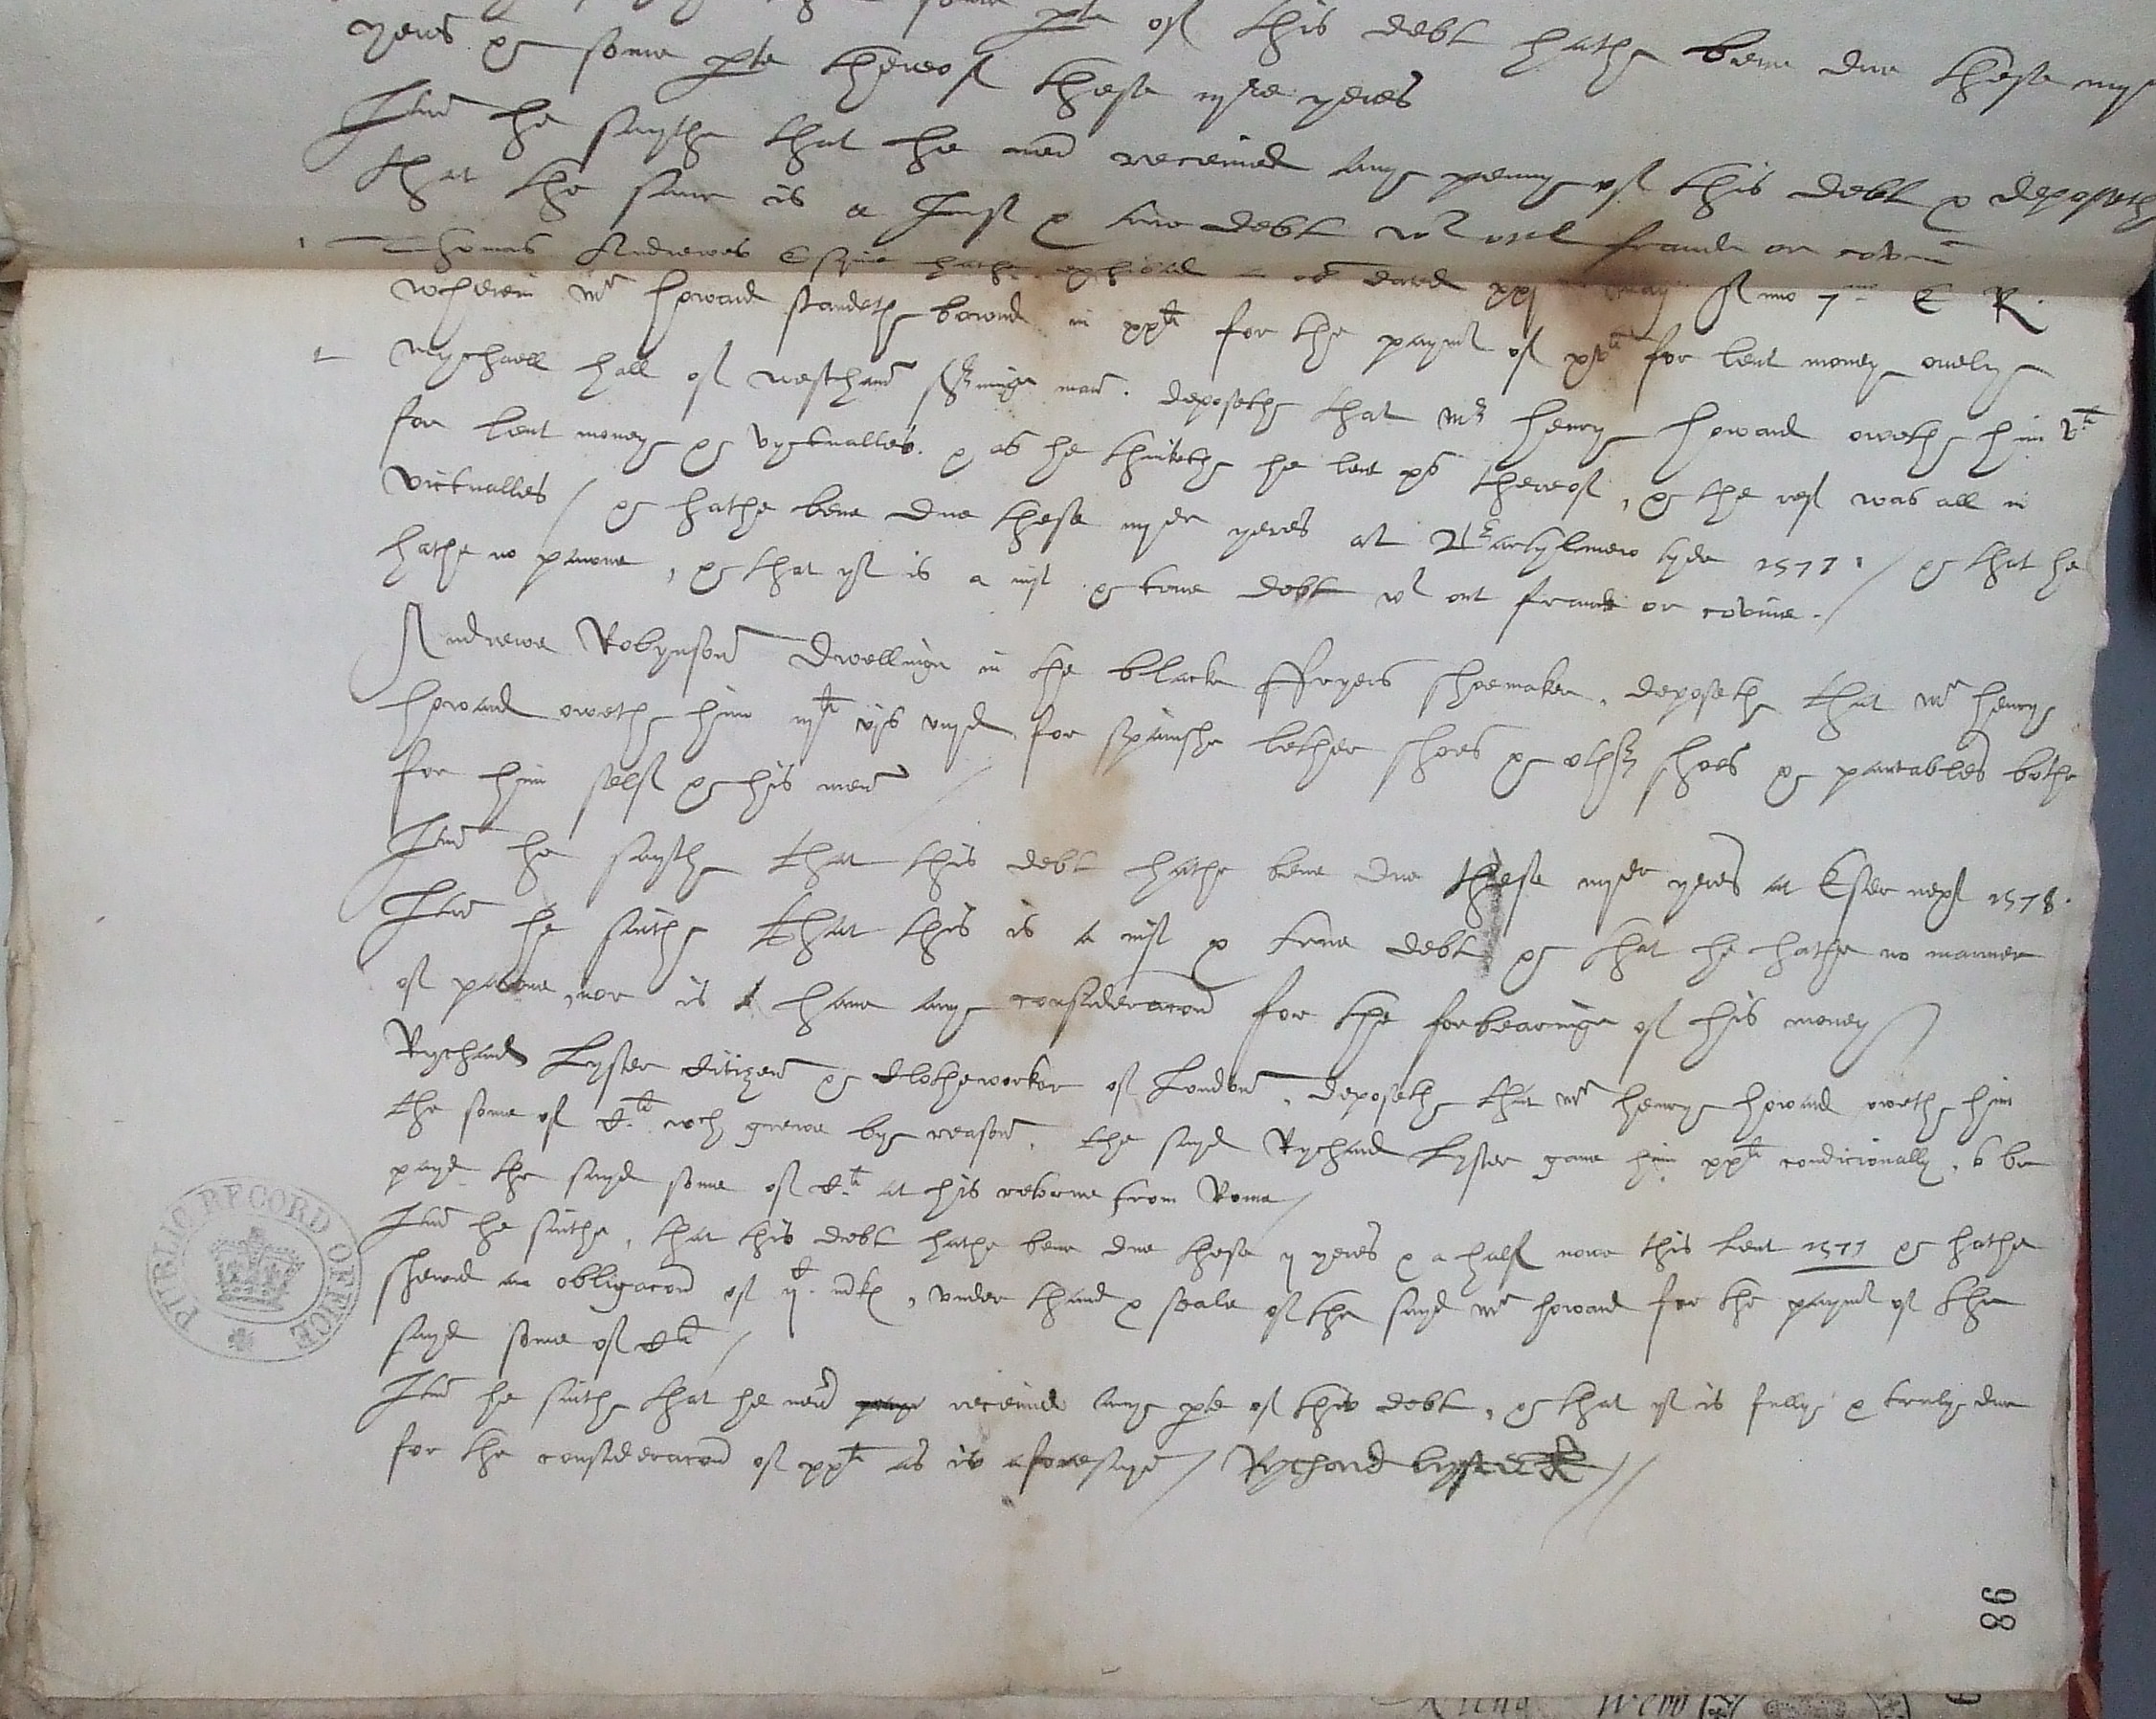 some pte of this debt hathe bene due these
yeres & some pte thereof these yeres
Itm he saythe that he nev receiued any penny of this debt & deposeth
that the same is a Just & true debt wt out fraude or covin
Thomas Andrewes Esquie hathe dated xxj may Ano 7mo E R.
wherein Mr howard standeth bownd in xxli for the paymt of xvli for lent money onely
Mychaell hall of westham man. deposeth that Mr henry howard oweth him li
for lent money & vyctualles. & as he thinketh he lent xs thereof, & the rest was all in
victualles / & hathe bene due these yeres at tyde 1577. / & that he
hathe no pawne, & that yt is a iust & true debt wt out fraude or covine. /
Andrewe Robynson dwellinge in the blacke ffryers shoemaker. deposeth that Mr henry
howard oweth him iijli vjs viijd for spanishe lether shoes & other shoes & pantables bothe
for him self & his men /
Itm he sayth that this debt hathe bene due these yeres at Ester next 1578.
Itm he saith that this is a iust & true debt & that he hathe no manner
of pawne, nor is t have any consideracon for the forbearinge of his money
Rychard Lyster Citizen & Clotheworker of London. deposeth that Mr henry howard oweth him
the some of Cli wch grewe by reason. the sayd Rychard Lyster gave him xxli condicionally, to be
payd the sayd some of Cli at his retorne from Rome /
Itm he saithe, that this debt hathe bene due these ij yeres & a half nowe this lent 1577 & hathe
shewed an obligacon of ijC mrks, vnder thand & seale of the sayd Mr howard for the paymt of the
sayd some of Cli /
Itm he saith that he nev receiued any pte of this debt, & that yt is fully & truly due
for the consideracon of xxli as is aforesayd / Rychard lyster //
PUBLIC RECORD OFFICE
98